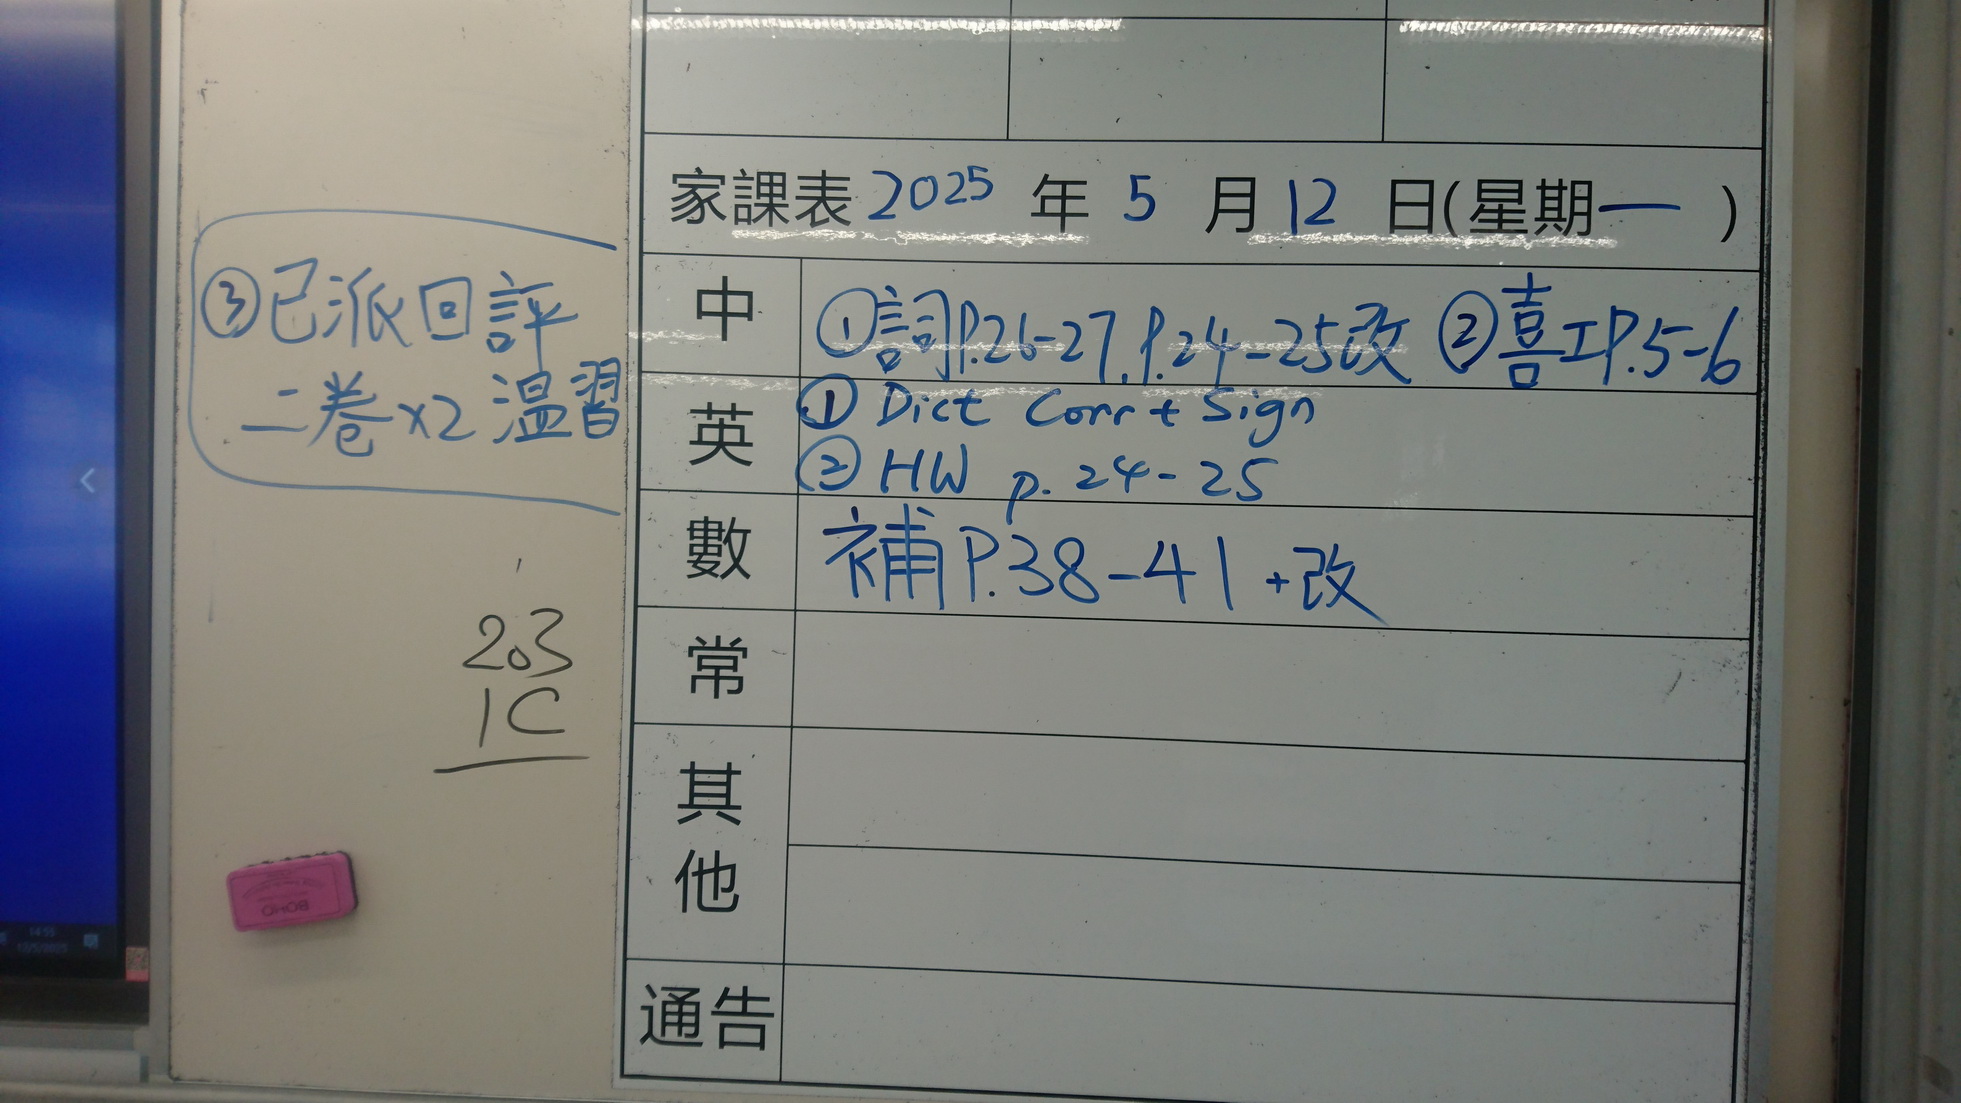 家課表 2025 年 5 月 12 日(星期一)
中 ①詞P.26-27, P.24-25改 ②喜工P.5-6
③已派回評
二卷x2 温習
英 ① Dict Corr + Sign
② HW p. 24-25
數 補P.38-41 +改
常
其他
通告
2.3
1C
BOHO
14:55
12/5/2025